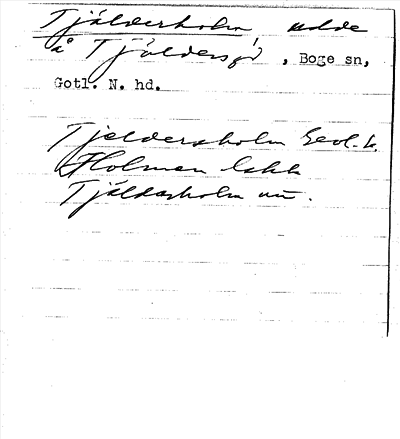 Tjälderholm, udde
å Tjäldersjö, Boge sn,
Gotl. N. hd.
Tjeldersholm Geol. k.
Holmen
Tjäldersholm